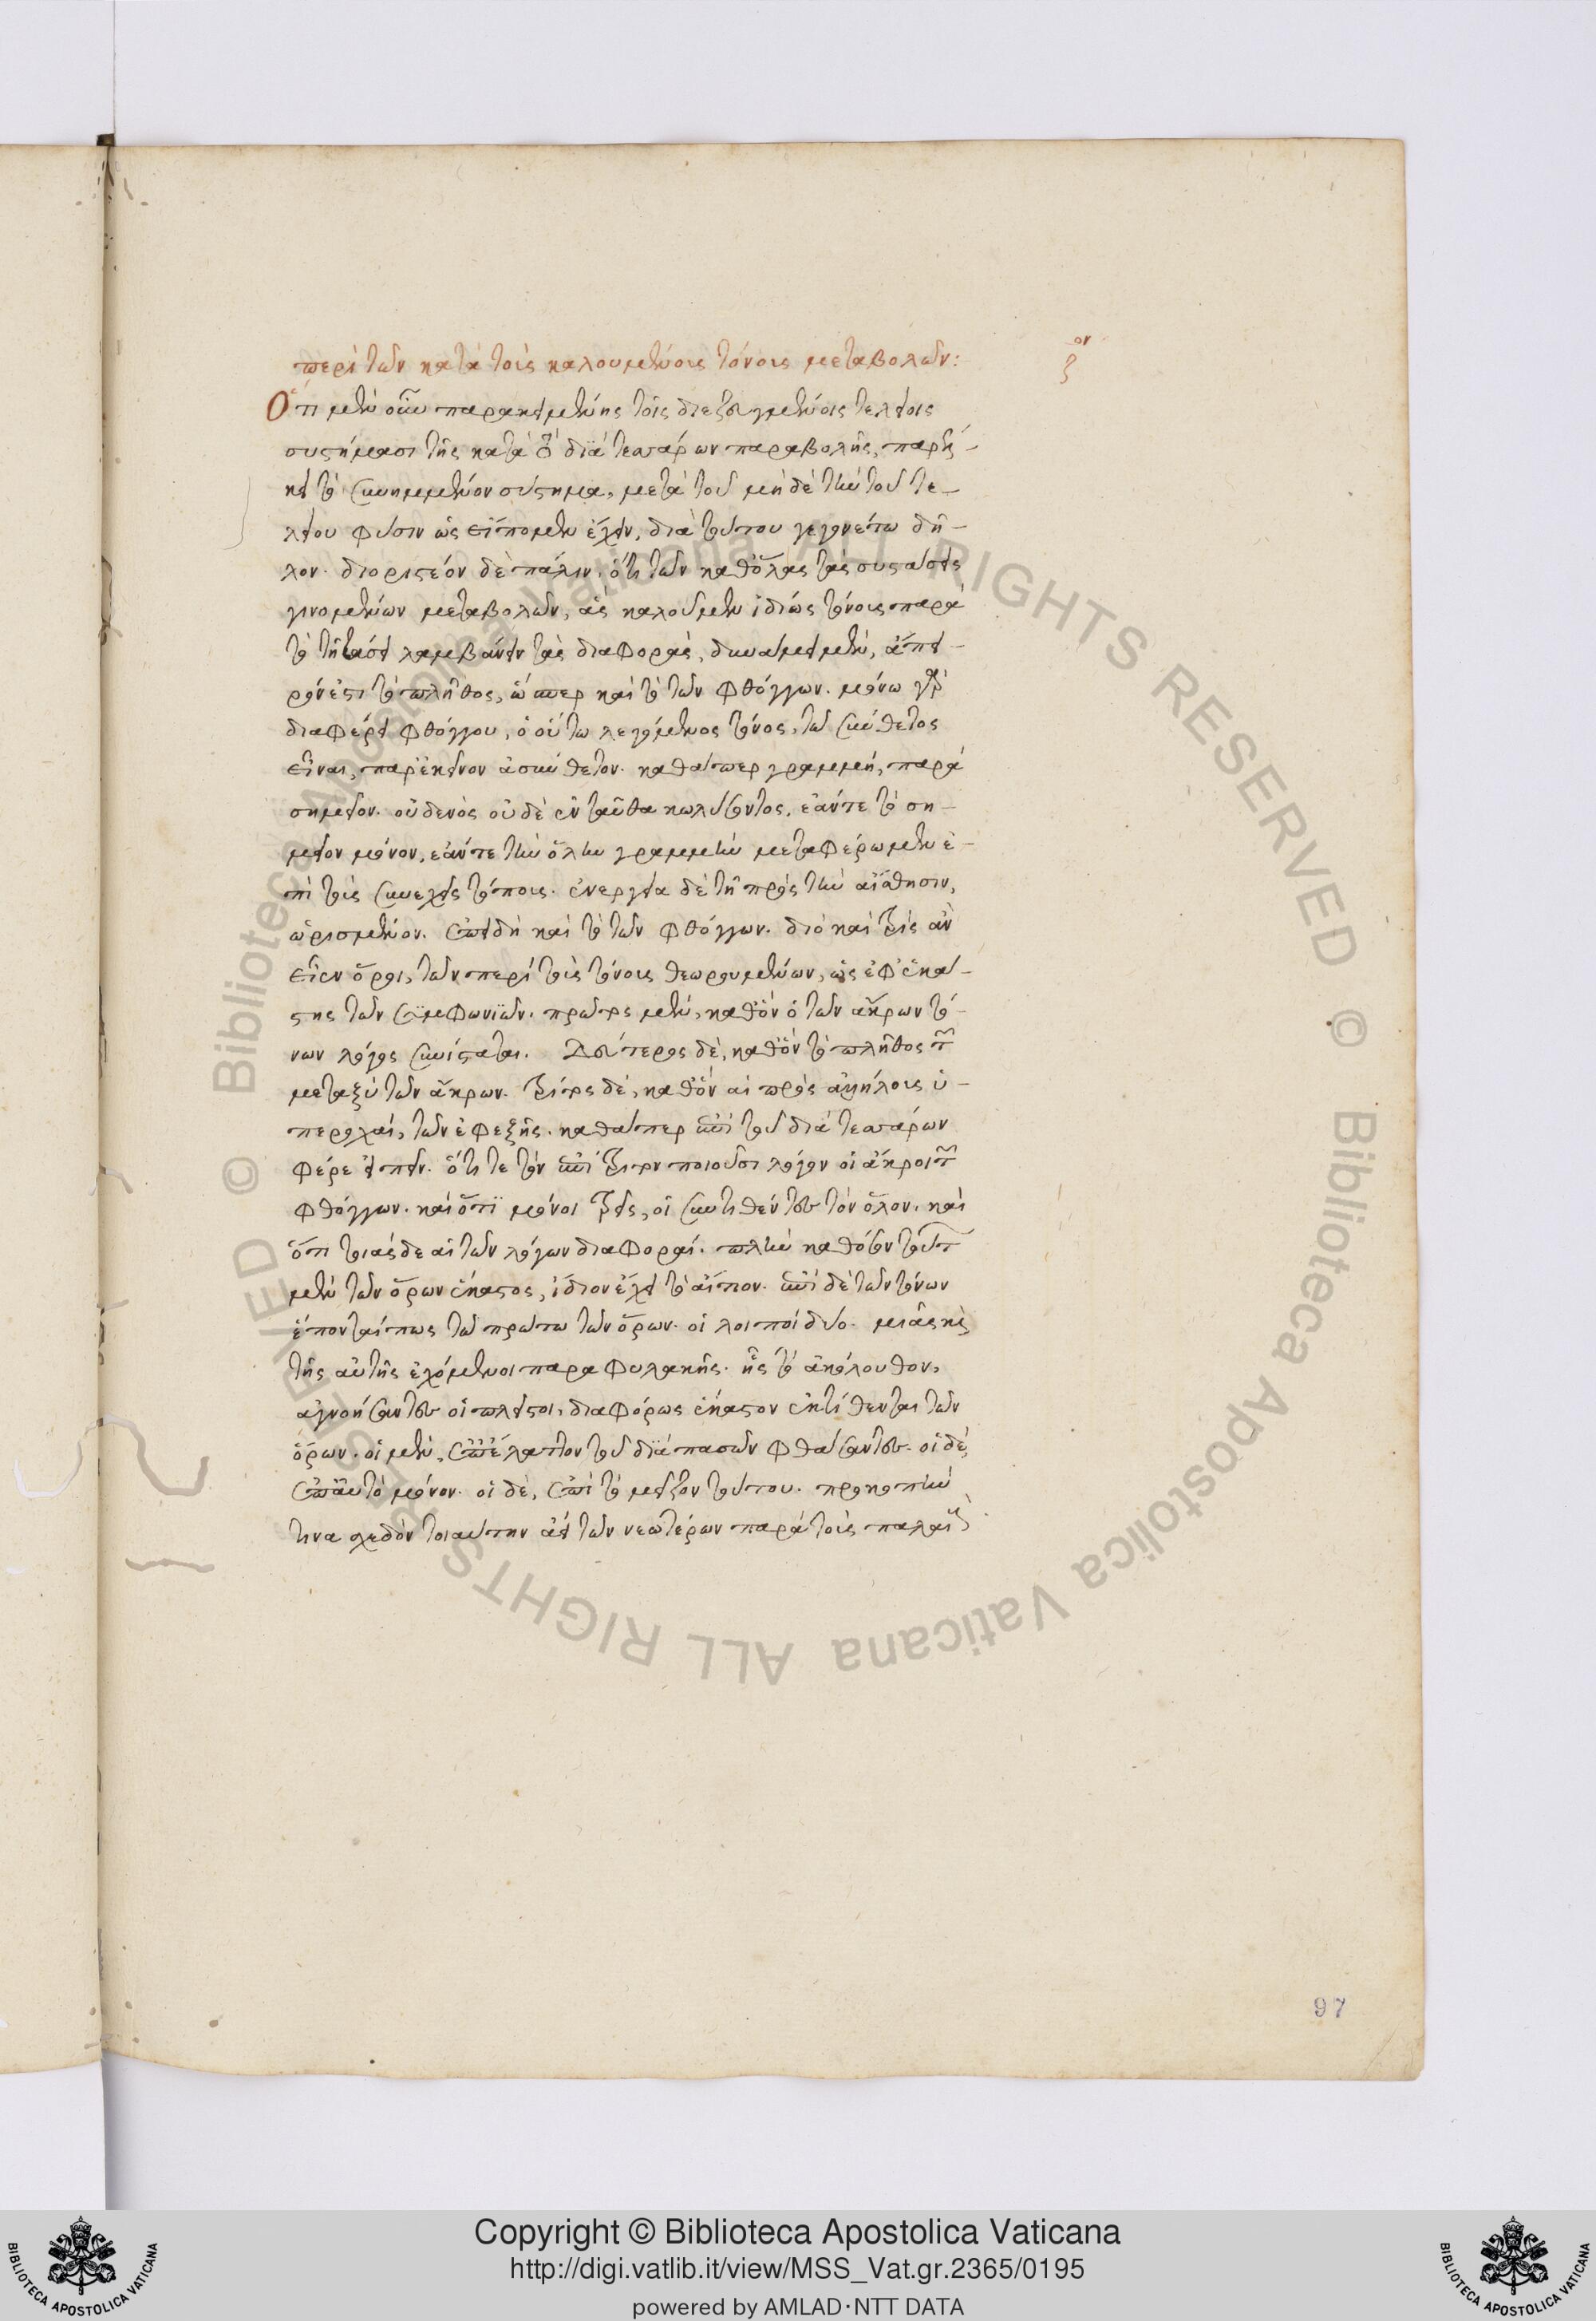 περὶ τῶν κατὰ τοὺς καλουμένους τόνους μεταβολῶν: ζον
Ὅτι μὲν οὖν παρακειμένης τοῖς διεζευγμένοις τελείοις
συστήμασι τῆς κατὰ τὸ διὰ τεσσάρων παραβολῆς, παρῇ-
κει τὸ συνημμένον σύστημα, μετὰ τοῦ μηδὲ τὴν τοῦ τε-
λείου φύσιν ὡς εἴπομεν ἔχειν, διὰ τούτου γεγονέτω δῆ-
λον. διοριστέον δὲ πάλιν. ὅτι τῶν καθ' ὅλας τὰς συστάσεις
γινομένων μεταβολῶν, ἃς καλοῦμεν ἰδίως τόνους παρὰ
τὸ τῇ τάσει λαμβάνειν τὰς διαφορὰς, δυνάμει μὲν, ἄπει-
ρόν ἐστι τὸ πλῆθος, ὥσπερ καὶ τὸ τῶν φθόγγων. μόνω γὰρ
διαφέρει φθόγγου, ὁ οὕτω λεγόμενος τόνος, τῶ σύνθετος
εἶναι, παρ' ἐκεῖνον ἀσύνθετον. καθάπερ γραμμὴ, παρὰ
σημεῖον. οὐδενὸς οὐδὲ ἐνταῦθα κωλύοντος, ἐάν τε τὸ ση-
μεῖον μόνον, ἐάν τε τὴν ὅλην γραμμὴν μεταφέρωμεν ἐ-
πὶ τοὺς συνεχεῖς τόπους. ἐνεργεία δὲ τῇ πρὸς τὴν αἴσθησιν,
ὡρισμένον. ἐπειδὴ καὶ τὸ τῶν φθόγγων. διὸ καὶ τρεῖς ἂν
εἶεν ὅροι, τῶν περὶ τοὺς τόνους θεωρουμένων, ὡς ἐφ' ἑκά-
στης τῶν συμφωνιῶν. πρῶτος μὲν, καθ' ὃν ὁ τῶν ἄκρων τό-
νων λόγος συνίσταται. Δεύτερος δὲ, καθ' ὃν τὸ πλῆθος τῶν
μεταξὺ τῶν ἄκρων. τρίτος δὲ, καθ' ὃν αἱ πρὸς ἀλλήλους ὑ-
περοχαὶ, τῶν ἐφεξῆς. καθάπερ ἐπὶ τοῦ διὰ τεσσάρων
φέρε εἰπεῖν. ὅτι τε τὸν ἐπίτριτον ποιοῦσι λόγον οἱ ἄκροι τῶν
φθόγγων. καὶ ὅτι μόνοι τρεῖς, οἱ συντιθέντες τὸν ὅλον. καὶ
ὅτι τοιαίδε αἱ τῶν λόγων διαφοραί. πλὴν καθόσον τούτων
μὲν τῶν ὅρων ἕκαστος, ἴδιον ἔχει τὸ αἴτιον. ἐπὶ δὲ τῶν τόνων
ἕπονταί πως τῶ πρώτω τῶν ὅρων. οἱ λοιποὶ δύο. μιᾶς καὶ
τῆς αὐτῆς ἐχόμενοι παραφυλακῆς. ἧς τὸ ἀκόλουθον,
ἀγνοήσαντες οἱ πλεῖστοι, διαφόρως ἕκαστον ἐκτίθενται τῶν
ὅρων. οἱ μὲν, ἐπ' ἔλαττον τοῦ διὰ πασῶν φθάσαντες. οἱ δὲ,
ἐπ' αὐτὸ μόνον. οἱ δὲ, ἐπὶ τὸ μεῖζον τούτου. προκοπὴν
τινα σχεδὸν τοιαύτην ἀεὶ τῶν νεωτέρων παρὰ τοὺς παλαιο
97
Copyright © Biblioteca Apostolica Vaticana
http://digi.vatlib.it/view/MSS_Vat.gr.2365/0195
powered by AMLAD·NTT DATA
BIBLIOTECA APOSTOLICA VATICANA
BIBLIOTECA APOSTOLICA VATICANA
© Biblioteca Apostolica Vaticana ALL RIGHTS RESERVED © Biblioteca Apostolica Vaticana ALL RIGHTS RESERVED